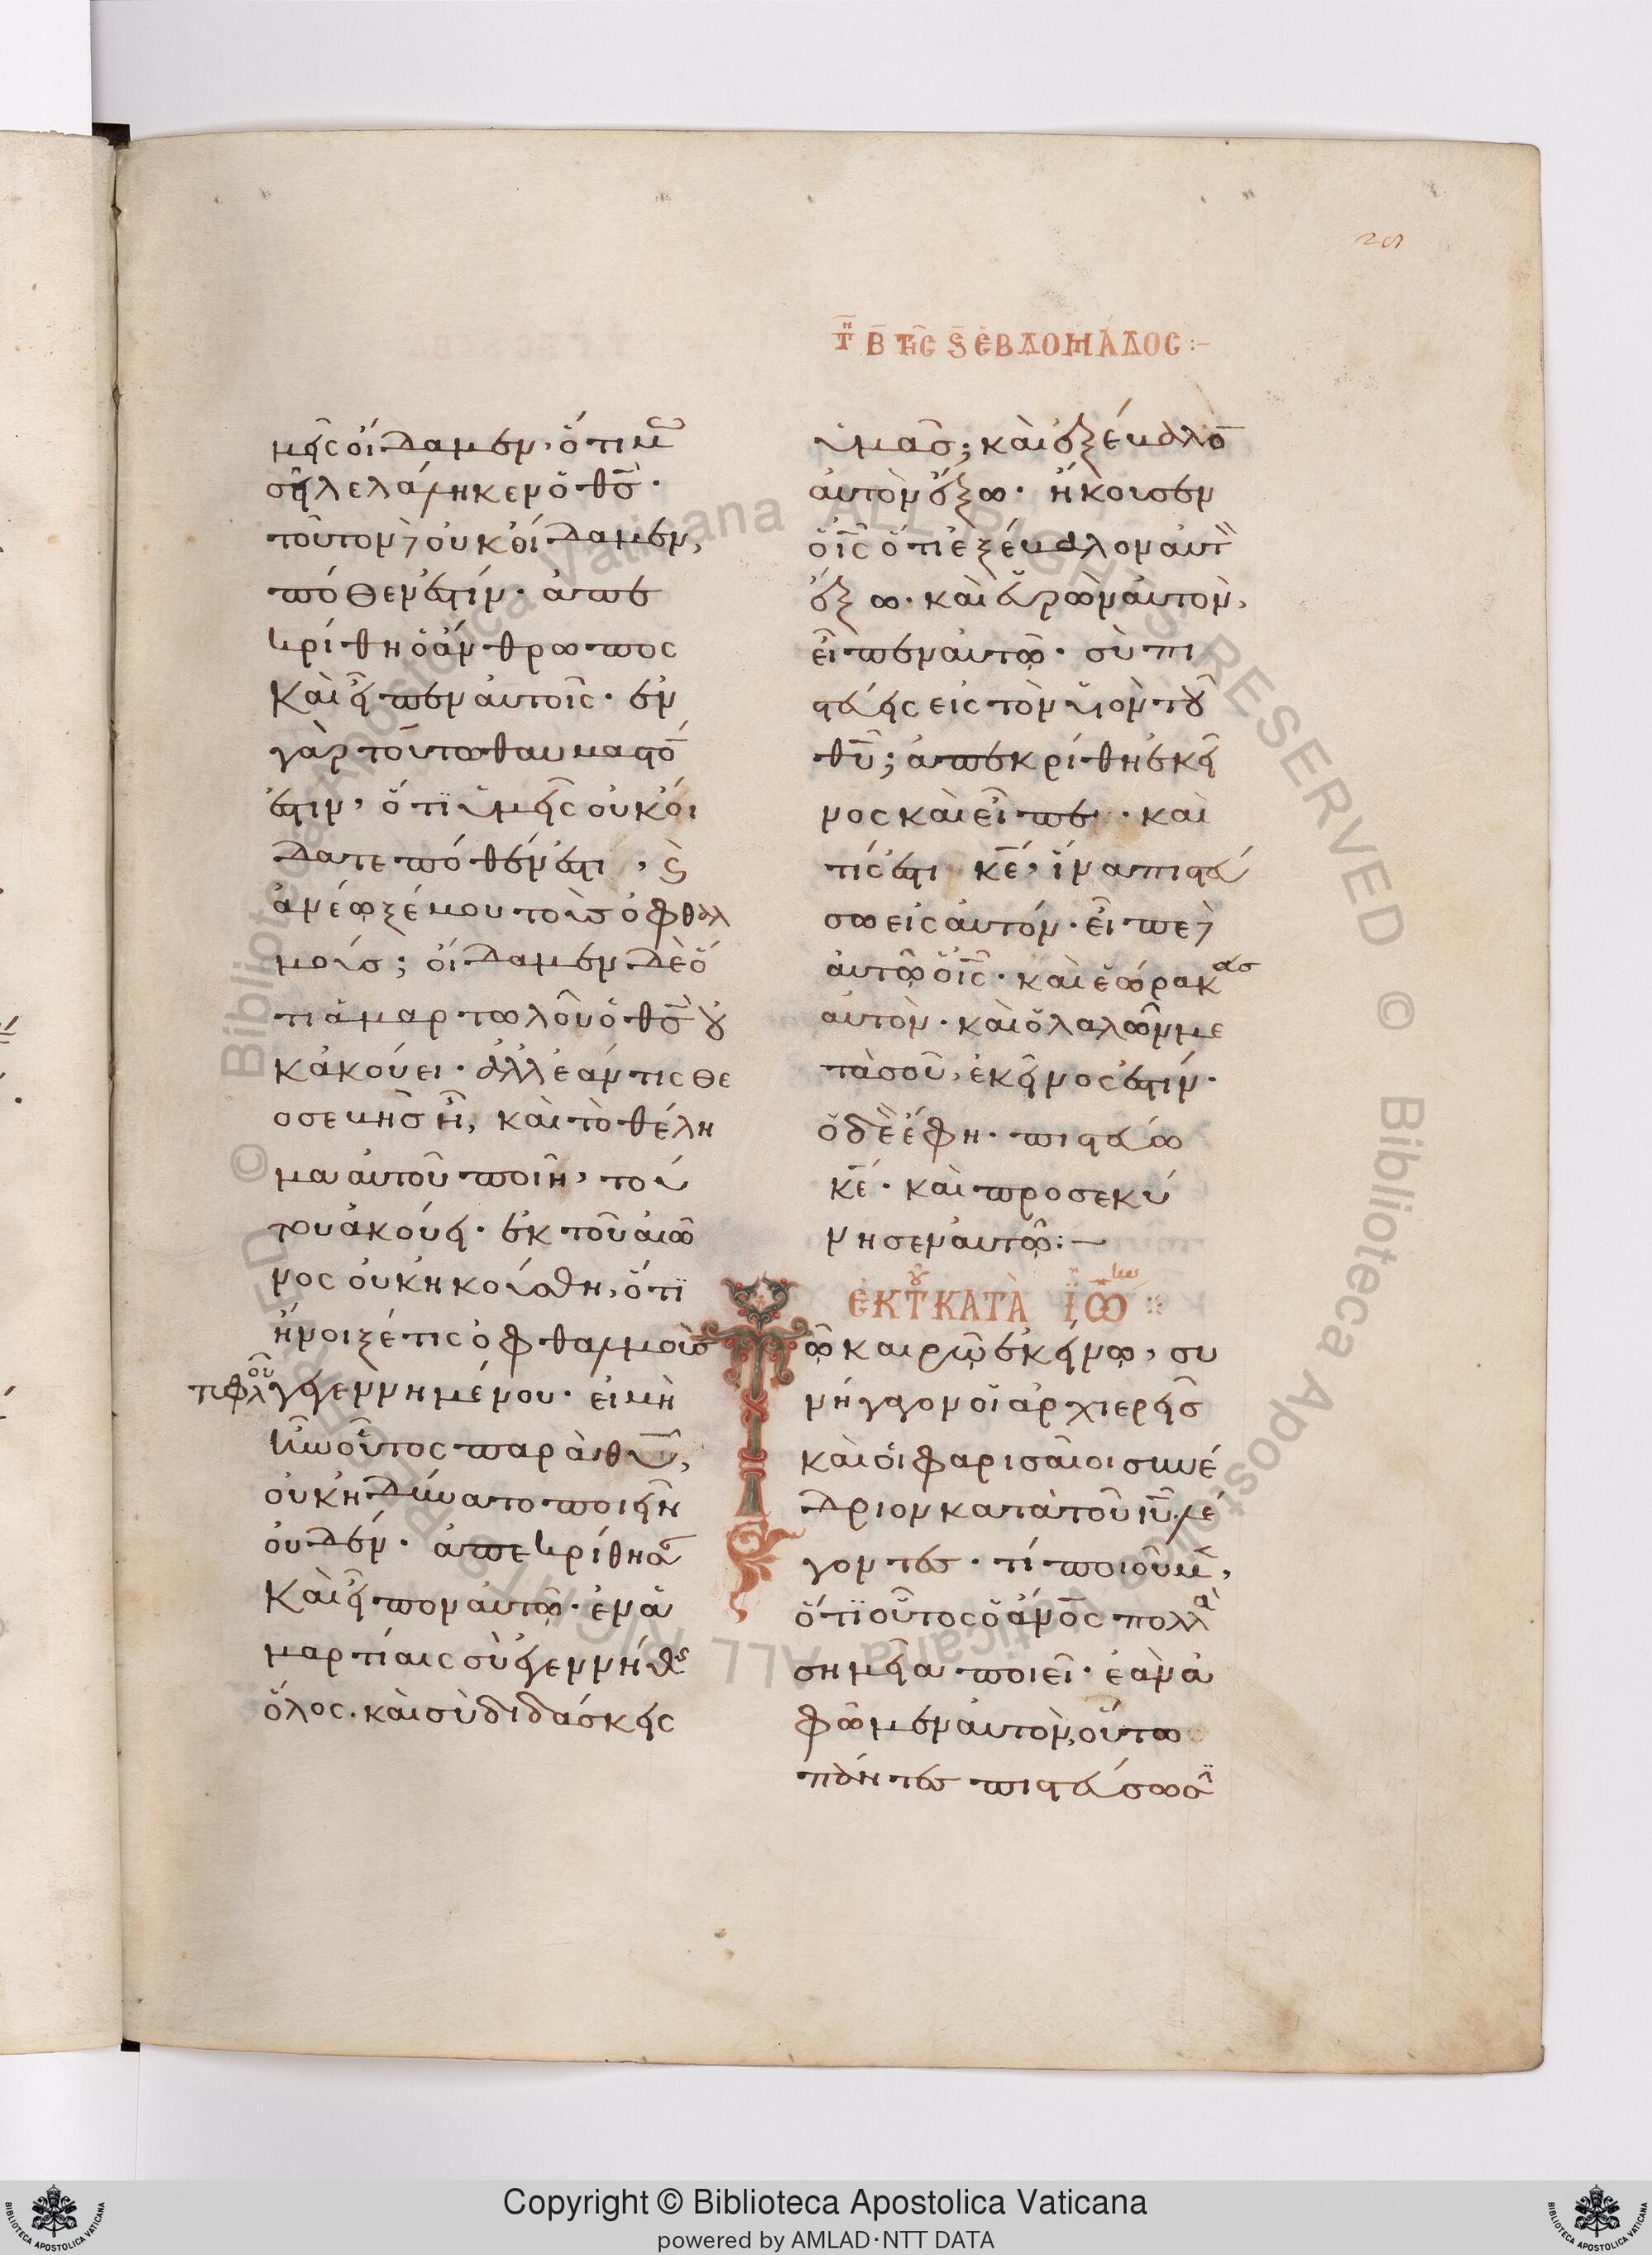 29
τη β της ς εβδομαδος :-
μεῖς οἴδαμεν, ὅτι μω
σῆ λελάληκεν ὁ θς̄ ·
τοῦτον, οὐκ οἴδαμεν,
πόθεν ἐστίν · ἀπε
κρίθη ὁ ἄνθρωπος
καὶ εἶπεν αὐτοῖς · ἐν
γὰρ τούτω θαυμαστό̄
ἐστιν, ὅτι ὑμεῖς οὐκ οί
δατε πόθεν ἐστι, ϛ̀
ἀνέωξέ μου τοὺς ὀφθαλ
μούς; οἴδαμεν δὲ ὅ
τι ἁμαρτωλοῦ ὁ θς̄ οὐ
κ ἀκούει · ἀλλ ἐάν τις θε
οσεβὴς ῆ, καὶ τὸ θέλη
μα αὐτοῦ ποιῆ, τού
του ἀκούει · ἐκ τοῦ αἰῶ
νος οὐκ ἠκούσθη, ὅτι
ἤνοιξέ τις ὀφθαλμοὺς
τυφλοῦ γεγεννημένου · εἰ μὴ
ἦν οὗτος παρὰ θῡ,
οὐκ ἠδύνατο ποιεῖν
οὐδέν · ἀπεκρίθησᾱ
καὶ εἶπον αὐτῶ · ἐν ἁ
μαρτίαις σὺ ἐγεννήθης
ὅλος · καὶ σὺ διδάσκεις
ἡμᾶς; καὶ ἐξέβαλο̄
αὐτὸν ἔξω · ἤκουσεν
ὁ ις̄ ὅτι ἐξέβαλον αὐτὸ̄
ἔξω · καὶ εὑρὼν αὐτὸν,
εἶπεν αὐτῶ · σὺ πι
στεύεις εἰς τὸν υἱὸν τοῦ
θῡ; ἀπεκρίθη ἐκεῖ
νος καὶ εἶπε · καὶ
τίς ἐστι κε̄, ἵνα πιστεύ
σω εἰς αὐτόν · εἶπε,
αὐτῶ ὁ ις̄ · καὶ ἑώρακας
αὐτὸν · καὶ ὁ λαλῶν με
τὰ σοῦ, ἐκεῖνος ἐστίν ·
ὁ δὲ ἔφη · πιστεύω
κε̄ · καὶ προσεκύ
νησεν αὐτῶ :—
ἐκ τοῦ κατὰ ἰω :
Τῶ καιρῶ ἐκείνω, συ
νήγαγον οἱ ἀρχιερεῖς
καὶ οἱ φαρισαῖοι συνέ
δριον κατὰ τοῦ ιῡ · λέ
γοντες · τί ποιοῦμε̄,
ὅτι οὗτος ὁ ἄνος̄ πολλὰ
σημεῖα ποιεῖ · ἐὰν ἀ
φῶμεν αὐτὸν, οὕτω
πάντες πιστεύσωσι
Copyright © Biblioteca Apostolica Vaticana
powered by AMLAD·NTT DATA